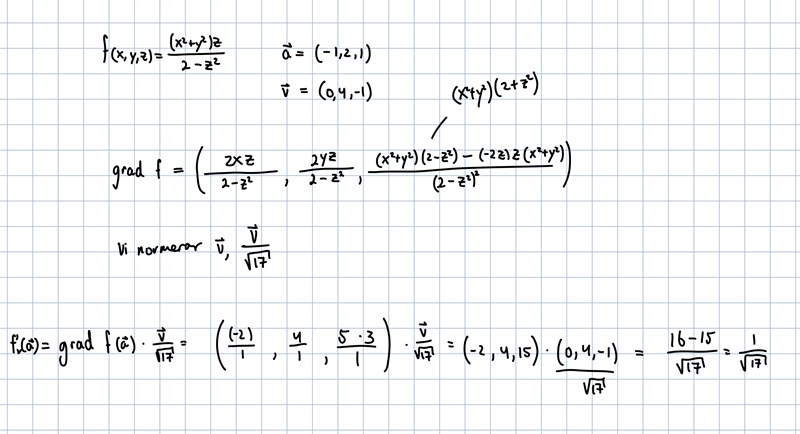 f(x,y,z) = (x²+y²)z / (2-z²)    a⃗ = (-1,2,1)
v⃗ = (0,4,-1)
(x²+y²)(2+z²)
grad f = ( 2xz / (2-z²) , 2yz / (2-z²) , ((x²+y²)(2-z²) - (-2z)z(x²+y²)) / (2-z²)² )
Vi normerar v⃗, v⃗/√17
f'ᵥ(a⃗) = grad f(a⃗) · v⃗/√17 = ( (-2)/1 , 4/1 , 5·3/1 ) · v⃗/√17 = (-2, 4, 15) · (0, 4, -1)/√17 = (16-15)/√17 = 1/√17